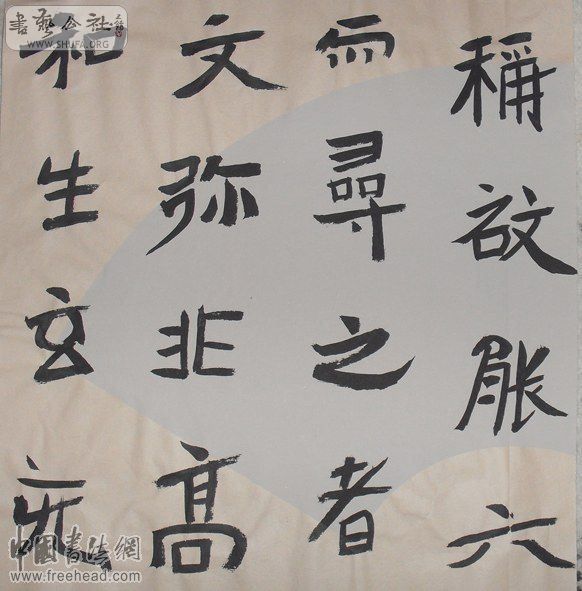 稱脹六
而尋之者
文弥非高
和生玄
書藝公社
WWW.SHUFA.ORG
中國書法網
www.freehead.com